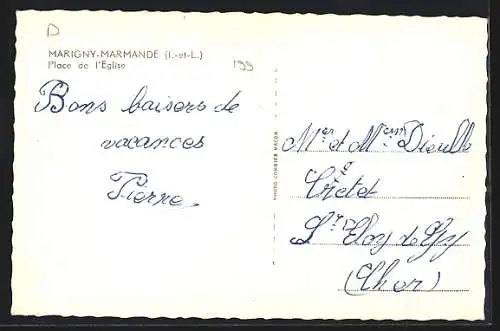 D
MARIGNY-MARMANDE (I.-et-L.)
Place de l'Eglise
199
Bons baisers de
vacances
Pierre
PHOTO COMBIER MACON
Mr et Mme Dieulle
Cretet
St Eloy de Gy
(Cher)